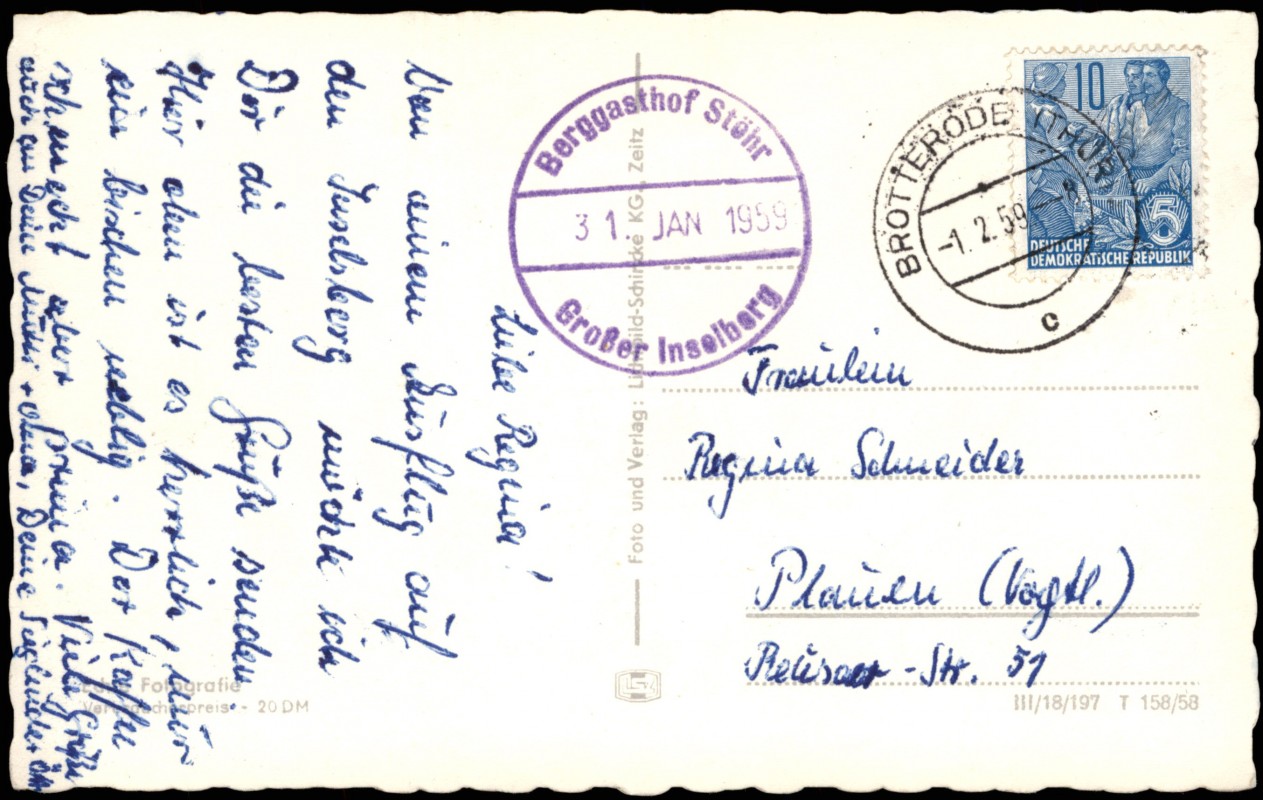 Liebe Regina!
Von einem Ausflug auf
den Inselsberg möchte ich
Dir die besten Grüße senden.
Hier oben ist es herrlich, nur
ein bischen neblig. Der Kaffee
schmeckt aber prima. Viele Grüße
auch an Deine Mutti + Oma, Deine
Echte Fotografie
Verbraucherpreis - 20 DM
Foto und Verlag: Lichtbild-Schincke KG., Zeitz
Berggasthof Stöhr
31. JAN 1959
Großer Inselberg
BROTTERODE (THÜR)
-1.2.59
c
10
5
DEUTSCHE
DEMOKRATISCHE REPUBLIK
Fräulein
Regina Schneider
Plauen (Vogtl.)
Reusaer-Str. 51
III/18/197 T 158/58